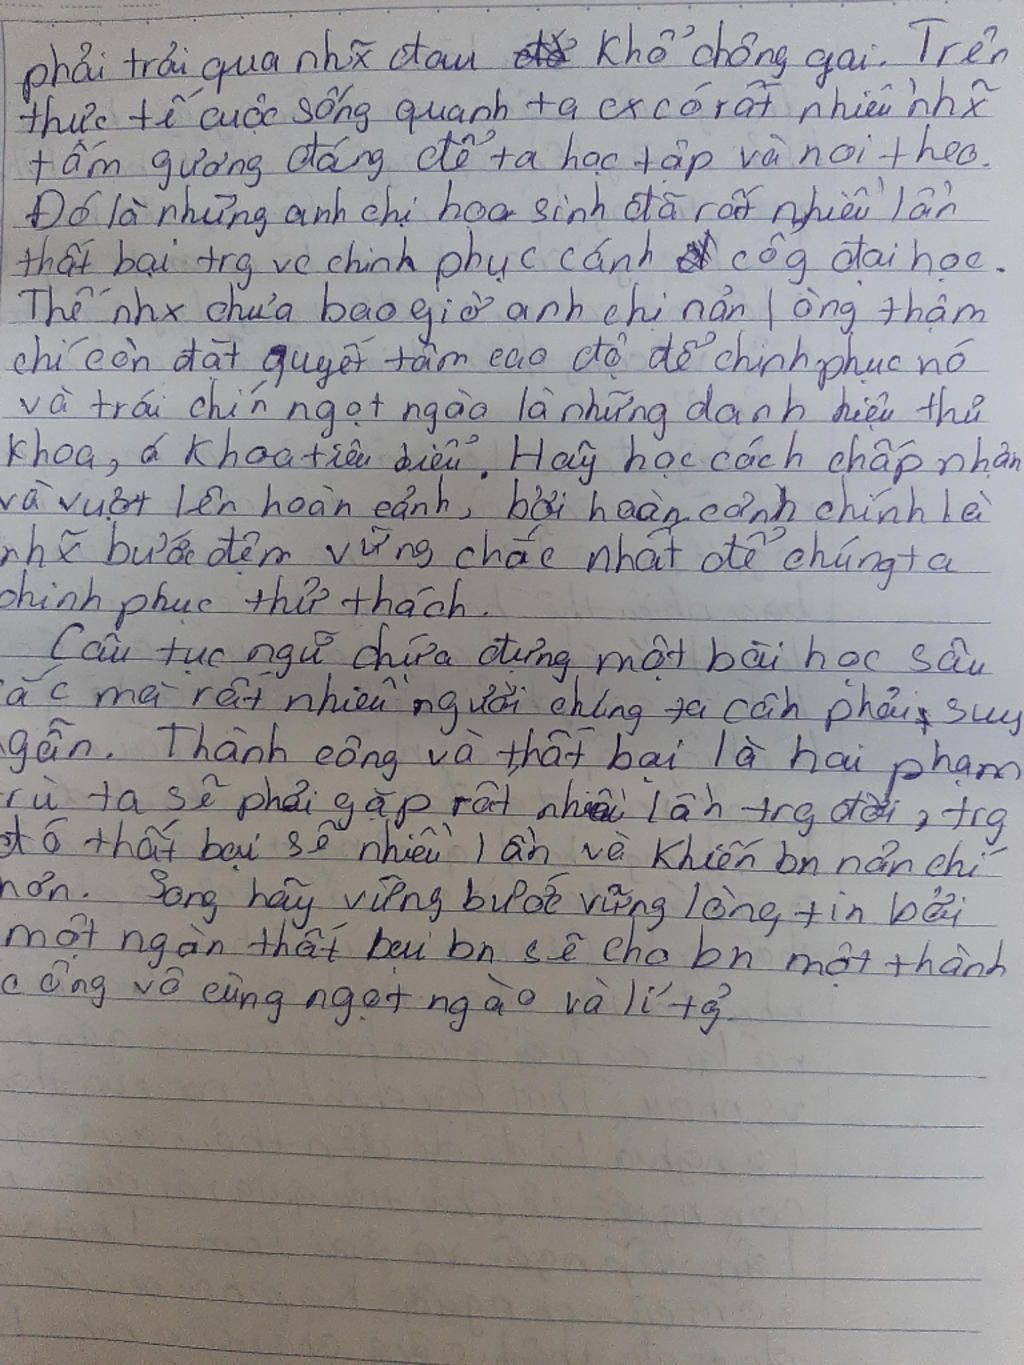 phải trải qua nhx̃ đau khổ chông gai. Trên
thực tế cuộc sống quanh ta cx có rất nhiều nhx̃
tấm gương đáng để ta học tập và noi theo.
Đó là những anh chị học sinh đã rất nhiều lần
thất bại trg vc chinh phục cánh côg đại học.
Thế nhx chưa bao giờ anh chị nản lòng thậm
chí còn đặt quyết tâm cao độ để chinh phục nó
và trái chín ngọt ngào là những danh hiệu thủ
khoa, á khoa tiêu biểu. Hãy học cách chấp nhận
và vượt lên hoàn cảnh, bởi hoàn cảnh chính là
nhx̃ bước đệm vững chắc nhất để chúng ta
chinh phục thử thách.
Câu tục ngữ chứa đựng một bài học sâu
ắc mà rất nhiều người chúng ta cần phải suy
gẫn. Thành công và thất bại là hai phạm
rù ta sẽ phải gặp rất nhiều lần trg đời, trg
đó thất bại sẽ nhiều lần và khiến bn nản chí
hơn. Song hãy vững bước vững lòng tin bởi
một ngàn thất bại bn sẽ cho bn một thành
công vô cùng ngọt ngào và lí tg̉.